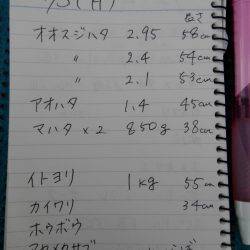 長さ
オオスジハタ 2.95 58cm
〃 2.4 54cm
〃 2.1 53cm
アオハタ 1.4 45cm
マハタ×2 850g 38cm
イトヨリ 1kg 55cm
カイワリ 34cm
ホウボウ